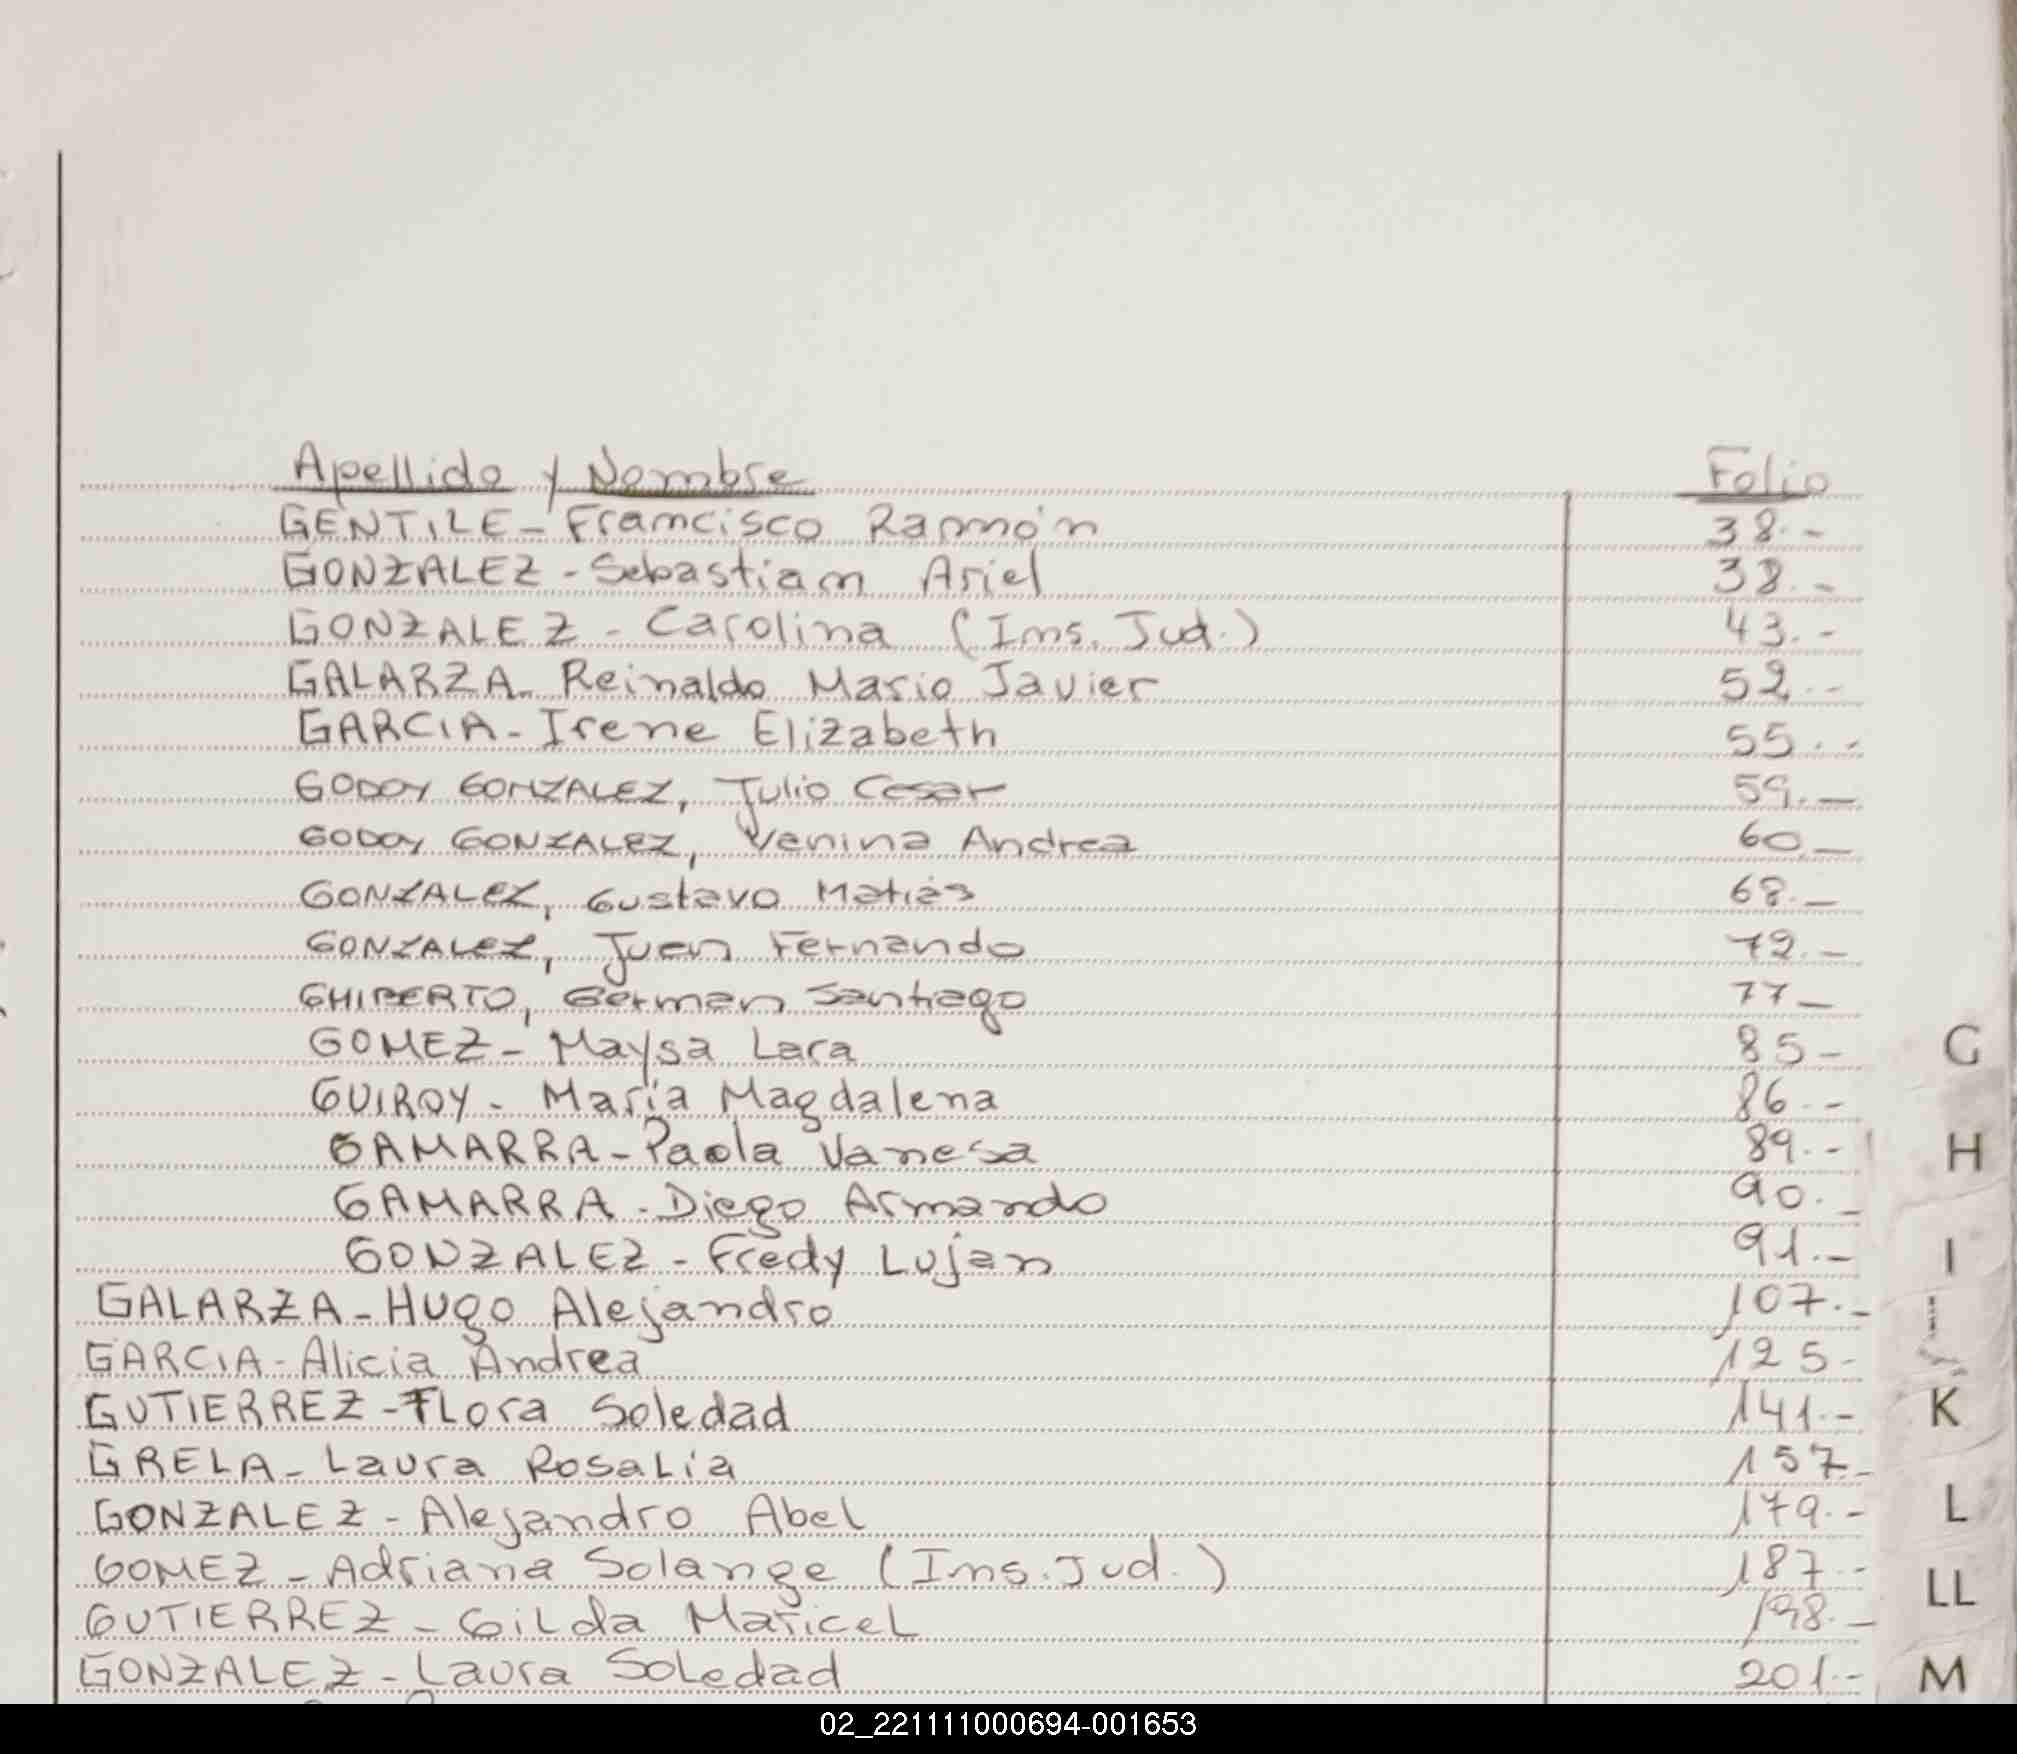 Apellido y Nombre Folio
GENTILE - Francisco Ramón 38.-
GONZALEZ - Sebastian Ariel 38.-
GONZALEZ - Carolina (Ins. Jud.) 43.-
GALARZA - Reinaldo Mario Javier 52.-
GARCIA - Irene Elizabeth 55.-
GODOY GONZALEZ, Julio Cesar 59.-
GODOY GONZALEZ, Yanina Andrea 60.-
GONZALEZ, Gustavo Matias 68.-
GONZALEZ, Juan Fernando 72.-
GHIPERTO, German Santiago 77-
GOMEZ - Maysa Lara 85-
GUIROY - María Magdalena 86.-
GAMARRA - Paola Vanesa 89.-
GAMARRA - Diego Armando 90.-
GONZALEZ - Fredy Lujan 91.-
GALARZA - Hugo Alejandro 107.-
GARCIA - Alicia Andrea 125-
GUTIERREZ - FLora Soledad 141.-
GRELA - Laura RosaLía 157.-
GONZALEZ - Alejandro Abel 179.-
GOMEZ - Adriana Solange (Ins. Jud.) 187.-
GUTIERREZ - GiLda MariceL 198.-
GONZALEZ - Laura SoLedad 201.-
G
H
I
K
L
LL
M
02_221111000694-001653